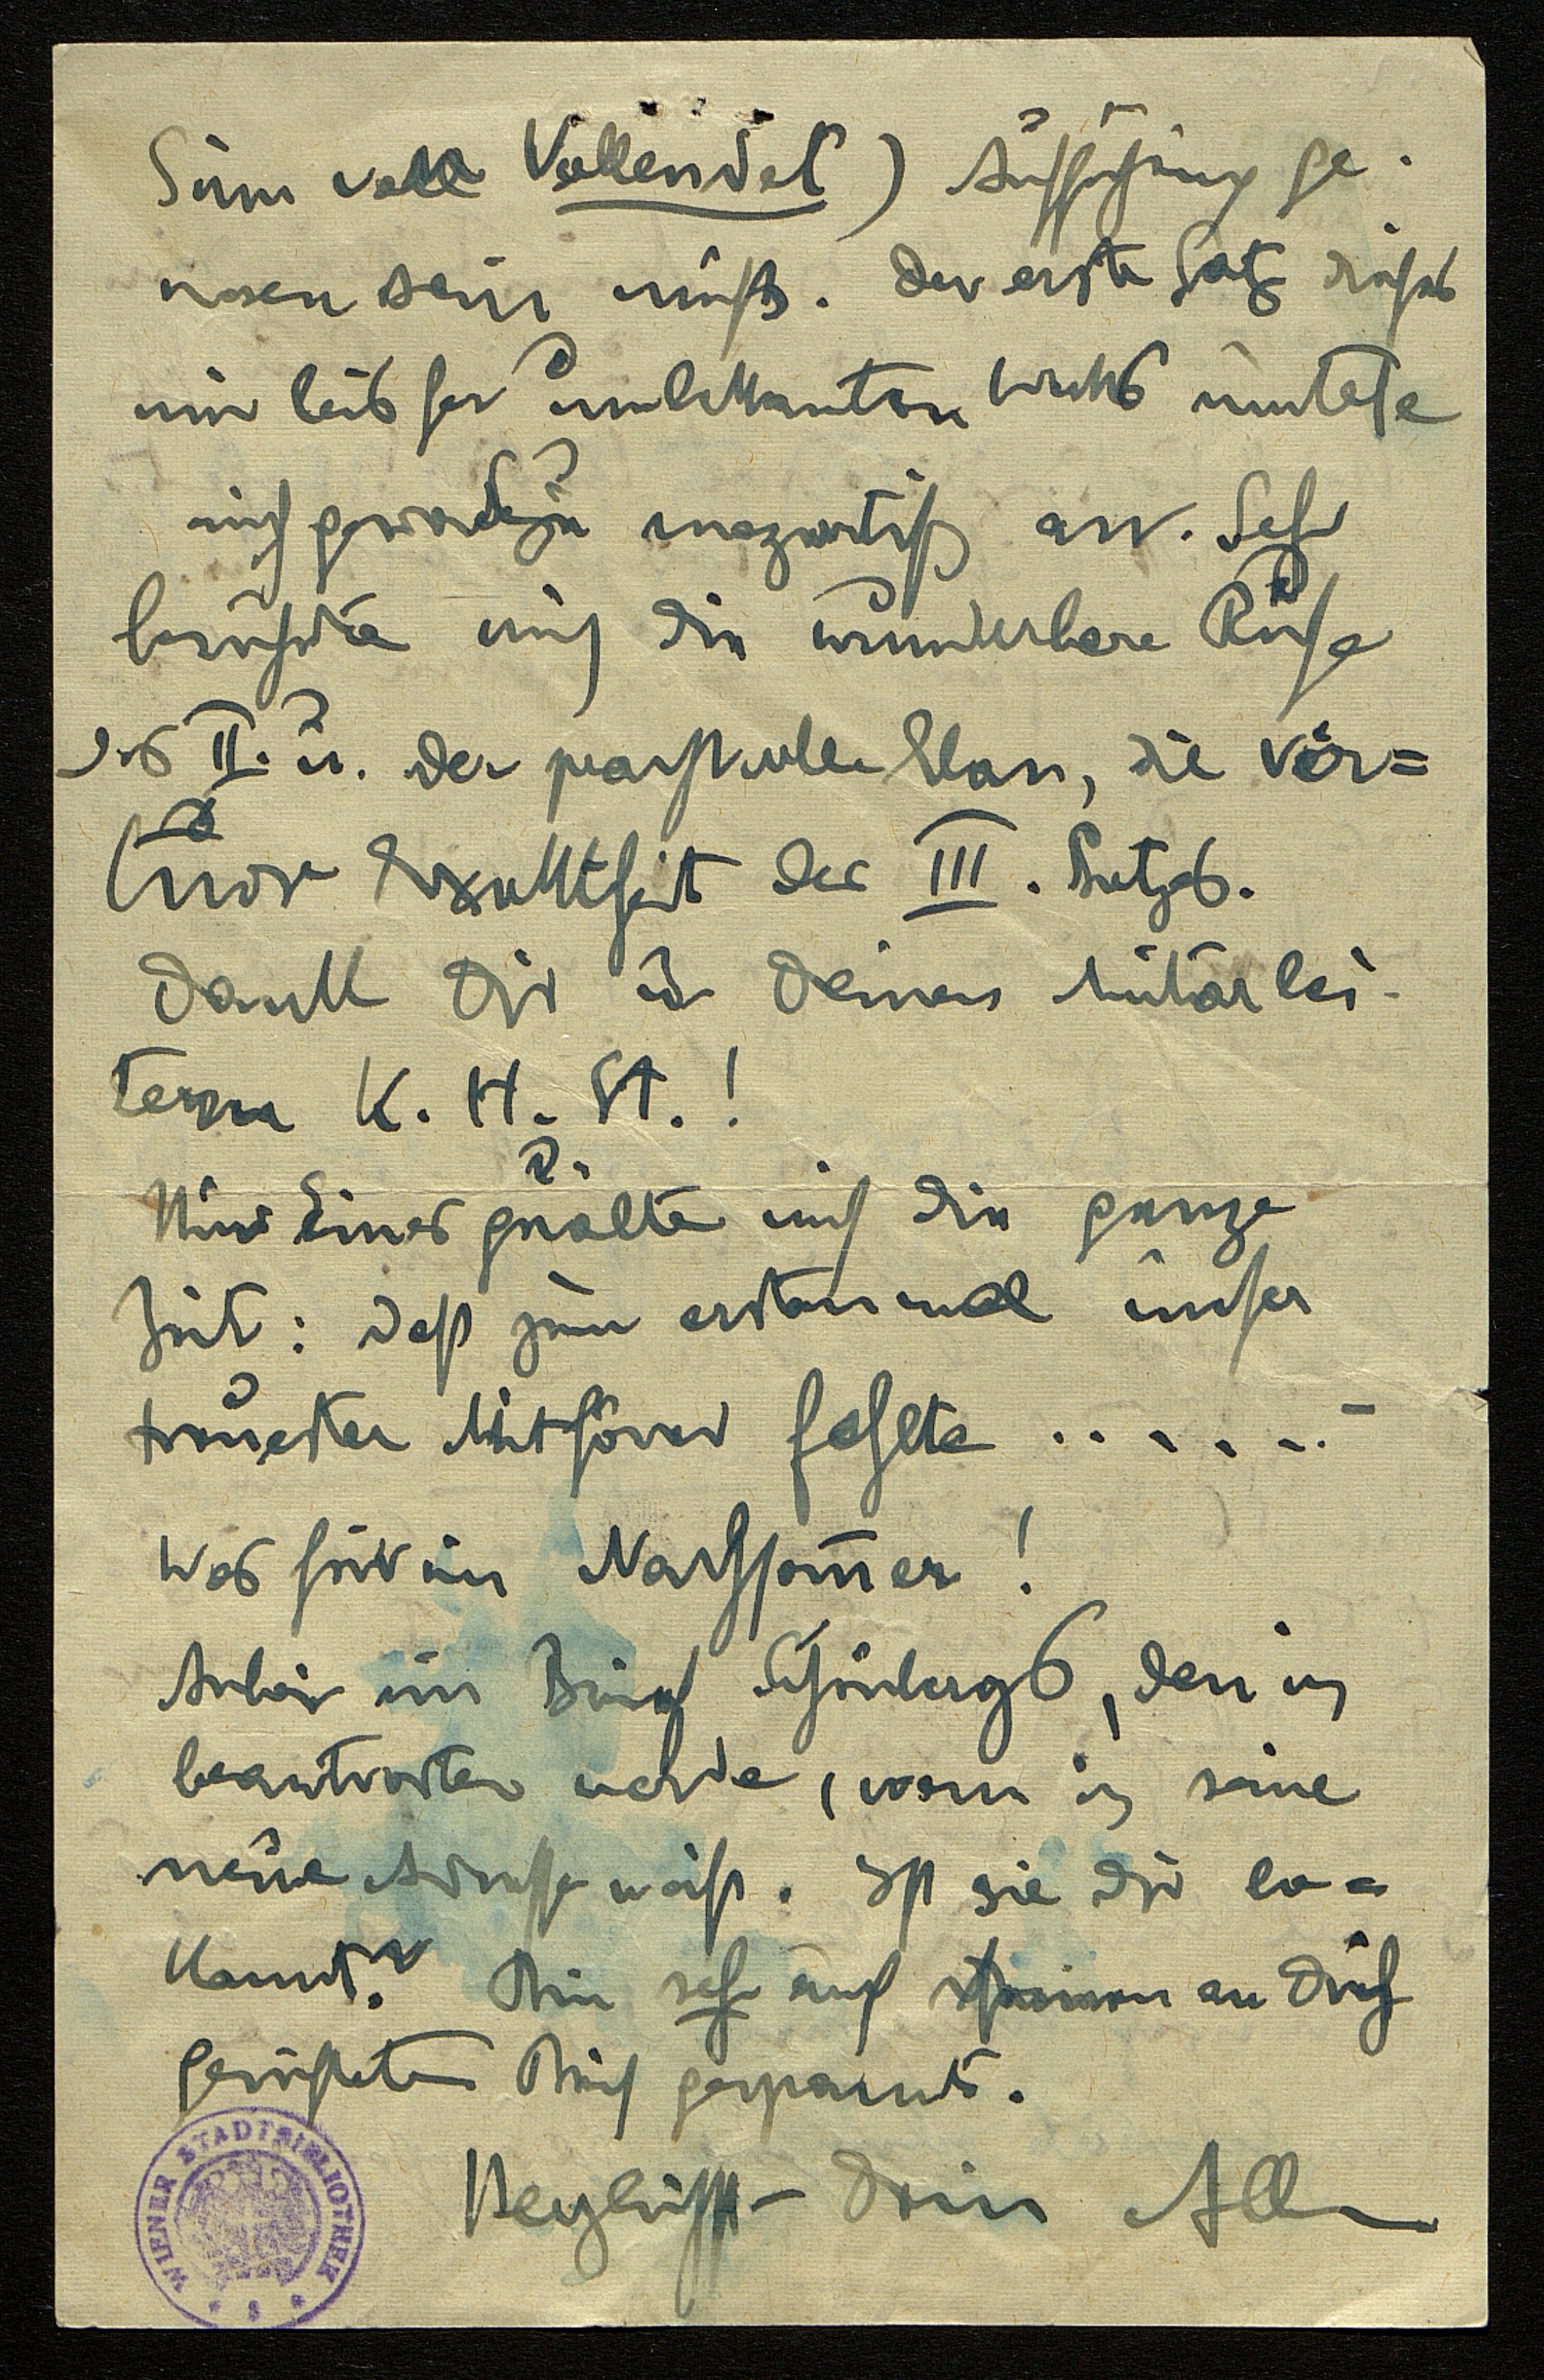 Sinn voll Vollendet) Aufführung ge-
wesen sein muß. Der erste Satz dieses
mir bisher unbekannten Werks mutete
mich geradezu mozartisch an. Sehr
berührte mich die wunderbare Ruhe
des II. u. der prachtvolle Elan, die vir=
tuose Exaktheit des III. Satzes.
Dank Dir u Deinen Mitarbei-
tern K. H. St.!
Nur Eines quälte mich die ganze
Zeit: daß zum erstenmal unser
treuester Mithörer fehlte ...... –
Was für ein Nachsommer!
Anbei ein Brief Schönbergs, den ich
beantworten werde, wenn ich seine
neue Adresse weiß. Ist sie Dir be=
kannt? Bin sehr auf seinen an Dich
gerichteten Brief gespannt.
Herzlichst – Dein
WIENER STADTBIBLIOTHEK